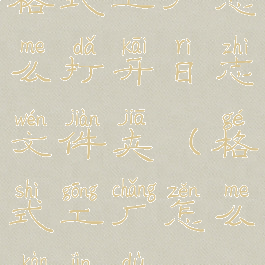 me dǎ kāi rì zhì
么 打 开 日 志
wén jiàn jiā gé
文 件 夹 （ 格
shì gōng chǎng zěn me
式 工 厂 怎 么